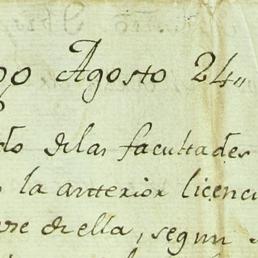 Agosto 24"
do delas facultades
la antterior licenci
de ella, segun